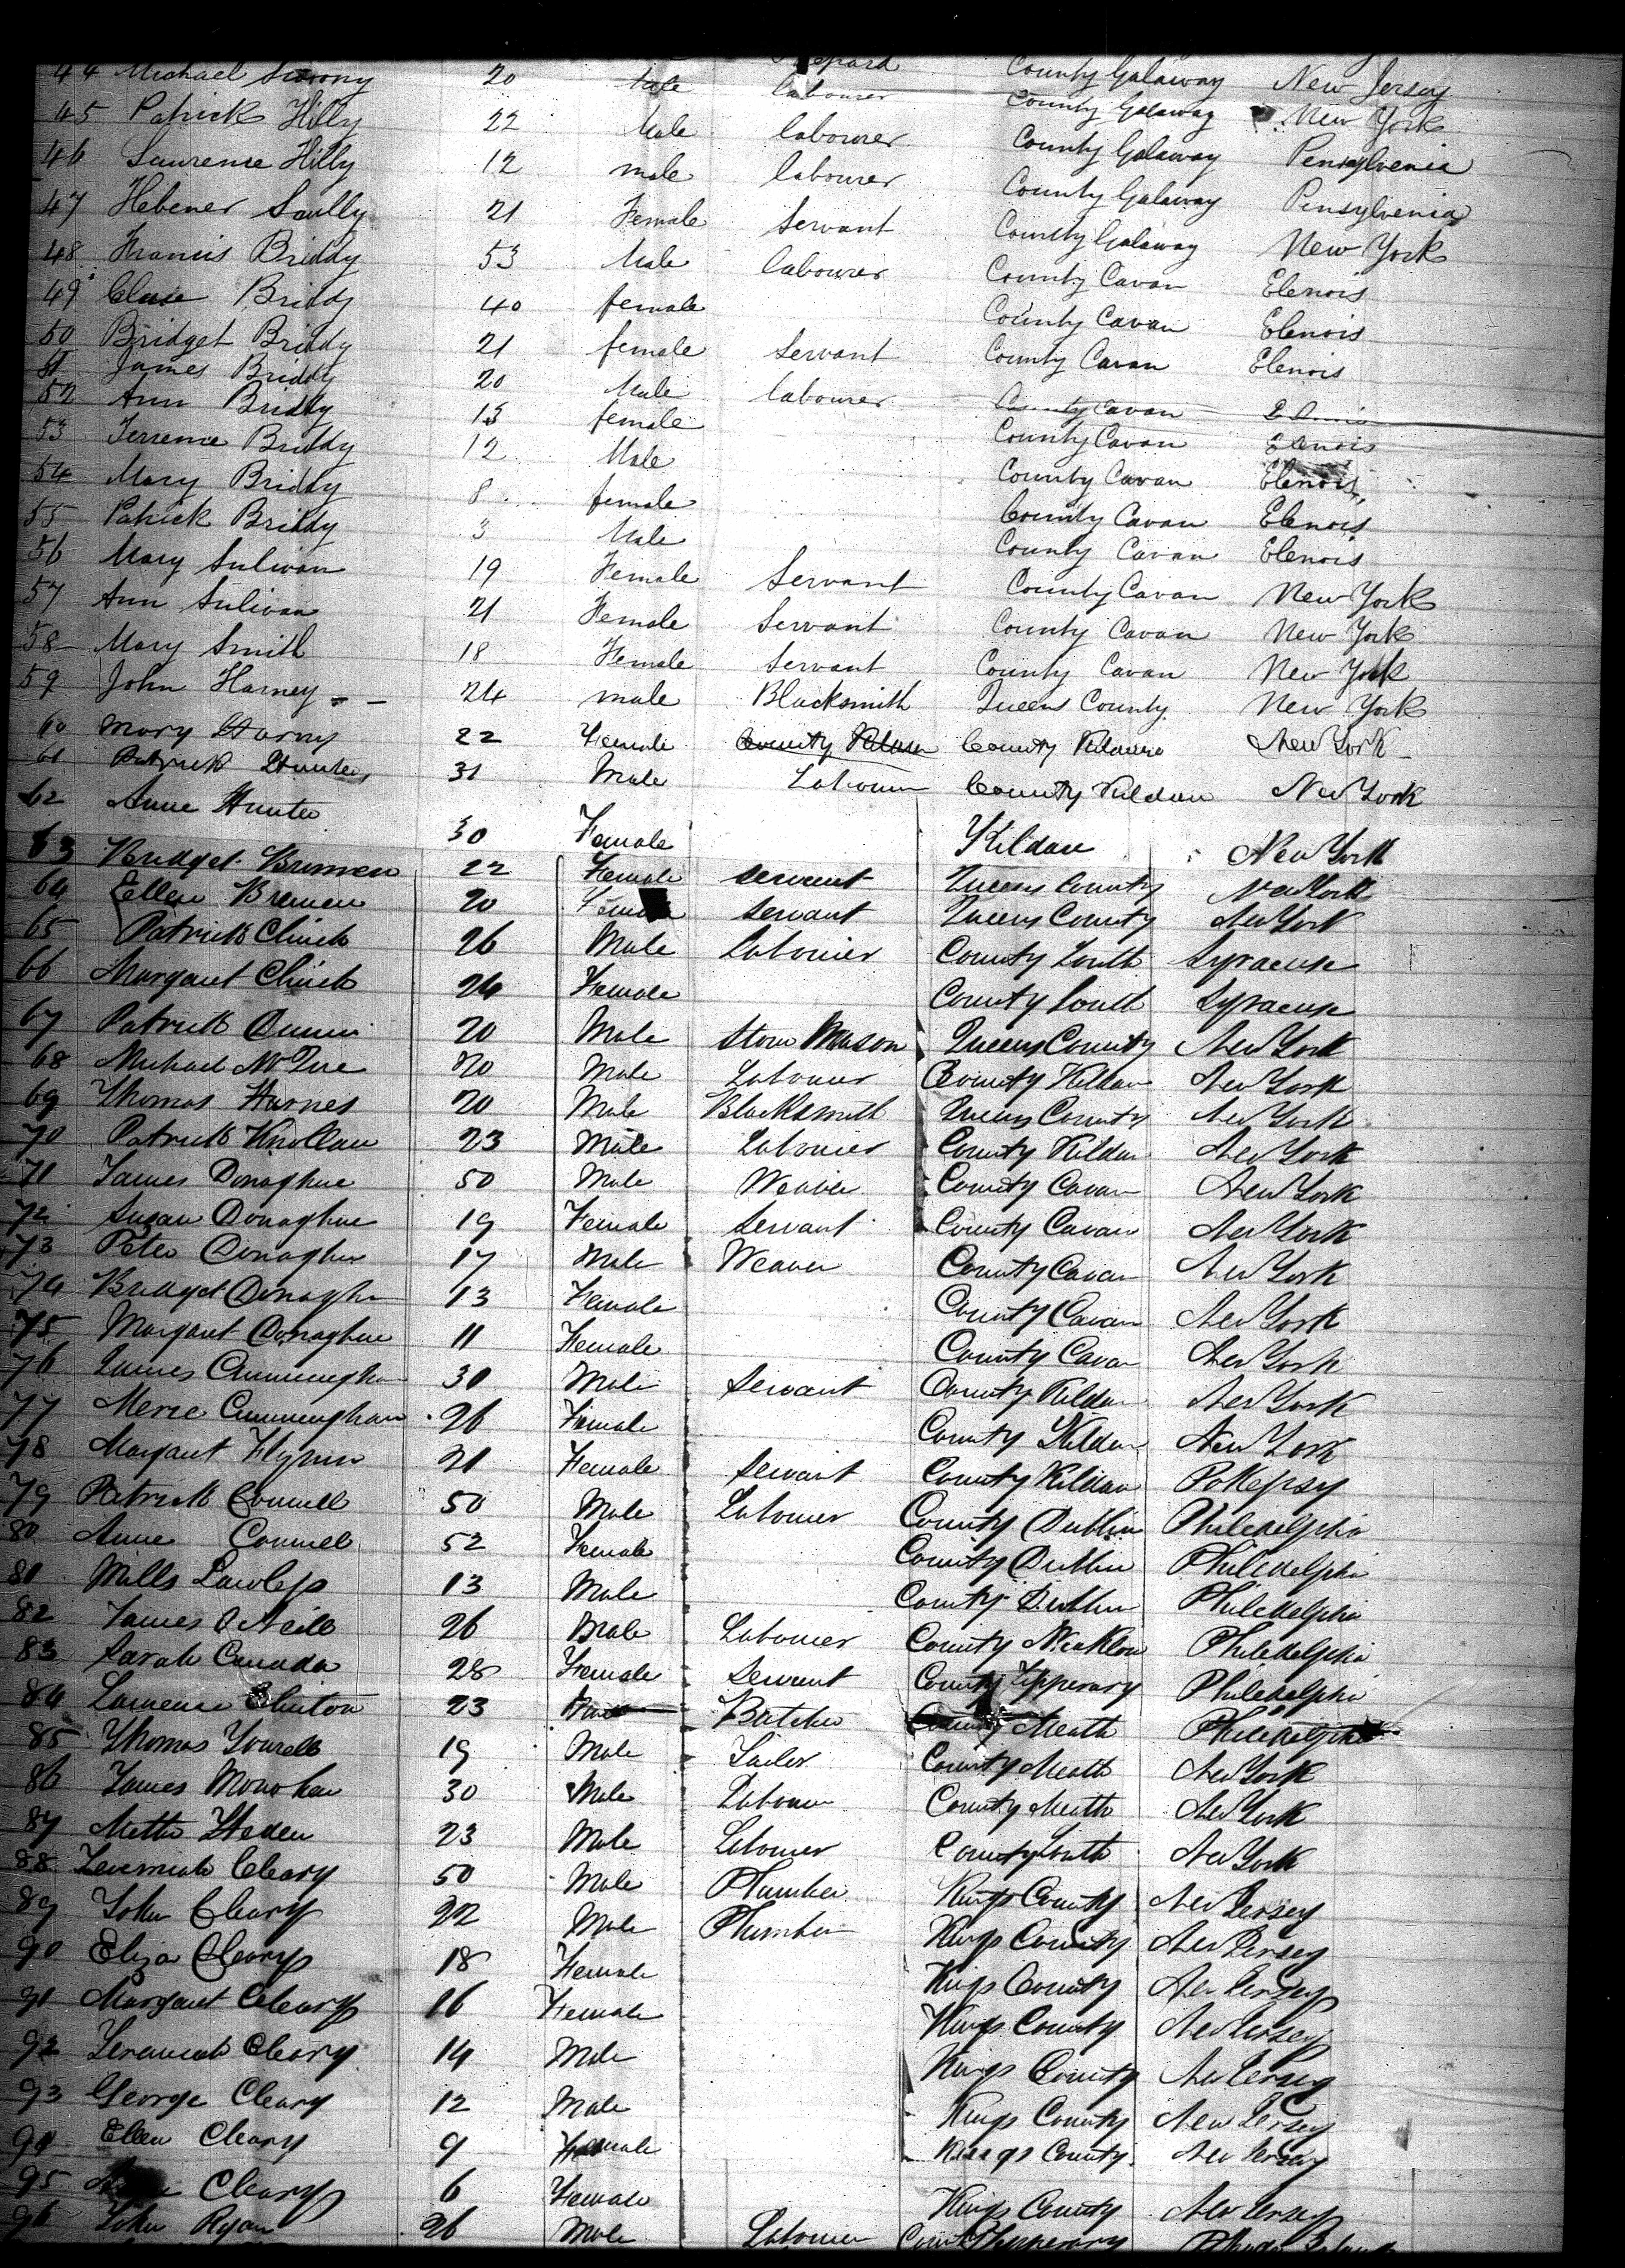 44 Michael 20 Male labourer County Galaway New Jersey
45 Patrick Hilly 22 Male labourer County Galaway New York
46 Laurence Hilly 12 male labourer County Galaway Pensylvenia
47 Hebener Scully 21 Female Servant County Galaway Pensylvenia
48 Francis Briddy 53 Male labourer County Galaway New York
49 Briddy 40 female County Cavan Elenois
50 Bridget Briddy 21 female Servant County Cavan Elenois
51 James Briddy 20 Male labourer County Cavan Elenois
52 Ann Briddy 13 female County Cavan
53 Terrence Briddy 12 Male County Cavan Elenois
54 Mary Briddy 8 female County Cavan Elenois
55 Patrick Briddy 3 Male County Cavan Elenois
56 Mary Sulivan 19 Female Servant County Cavan Elenois
57 Ann Sulivan 21 Female Servant County Cavan New York
58 Mary Smith 18 Female Servant County Cavan New York
59 John Harney 24 male Blacksmith County Cavan New York
60 Mary Harny 22 Female Queens County New York
61 Patrick Hunter 31 Male Labourer County Kildare New York
62 Anne Hunter 30 Female County Kildare New York
63 Bridget Brennen 22 Female servant Kildare New York
64 Ellen Brenen 20 Female servant Queens County New York
65 Patrick Clinch 26 Male Labourer Queens County New York
66 Margaret Clinch 24 Female County Louth Syracuse
67 Patrick 20 Male Stone Mason County Louth Syracuse
68 Michael 20 Male Labourer Queens County New York
69 Thomas Harnes 20 Male Blacksmith County Kildare New York
70 Patrick Knollan 23 Male Labourer Queens County New York
71 James Donaghue 50 Male Weaver County Kildare New York
72 Susan Donaghue 19 Female servant County Cavan New York
73 Peter Donaghue 17 Male Weaver County Cavan New York
74 Bridget Donaghue 13 Female County Cavan New York
75 Margaret Donaghue 11 Female County Cavan New York
76 James Cunningham 30 Male Servant County Cavan New York
77 Cunningham 26 Female County Kildare New York
78 Margaret Flynn 21 Female Servant County Kildare New York
79 Patrick Connell 50 Male Labourer County Kildare Pokepsy
80 Anne Connell 52 Female County Dublin Philedelphia
81 Mills Lawless 13 Male County Dublin Philedelphia
82 James O Neill 26 Male Labourer County Dublin Philedelphia
83 Sarah Canada 28 Female Servant County Wicklow Philedelphia
84 Laurence Clinton 23 Male Butcher County Tipperary Philedelphia
85 Thomas Yourell 19 Male County Meath Philedelphia
86 James Monohan 30 Male Labourer County Meath New York
87 23 Male Labourer County Meath New York
88 Jeremiah Cleary 50 Male Plumber County Louth New York
89 John Cleary 22 Male Plumber Kings County New Jersey
90 Eliza Cleary 18 Female Kings County New Jersey
91 Margaret Cleary 16 Female Kings County New Jersey
92 Jeremiah Cleary 14 Male Kings County New Jersey
93 George Cleary 12 Male Kings County New Jersey
94 Ellen Cleary 9 Female Kings County New Jersey
95 Cleary 6 Female Kings County New Jersey
96 John Ryan 26 Male Labourer Kings County New Jersey
County Tipperary